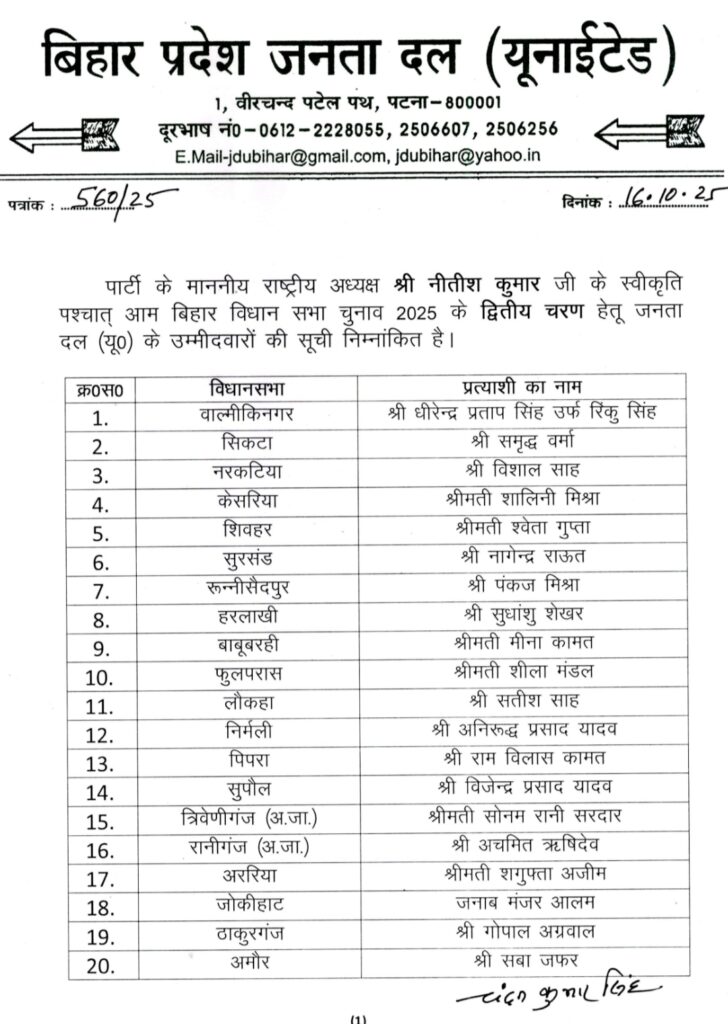 बिहार प्रदेश जनता दल (यूनाईटेड)
1, वीरचन्द पटेल पथ, पटना-800001
दूरभाष नं0-0612-2228055, 2506607, 2506256
E.Mail-jdubihar@gmail.com, jdubihar@yahoo.in
पत्रांक : 560/25 दिनांक : 16.10.25
पार्टी के माननीय राष्ट्रीय अध्यक्ष श्री नीतीश कुमार जी के स्वीकृति
पश्चात् आम बिहार विधान सभा चुनाव 2025 के द्वितीय चरण हेतू जनता
दल (यू0) के उम्मीदवारों की सूची निम्नांकित है।
क्र0स0 विधानसभा प्रत्याशी का नाम
1. वाल्मीकिनगर श्री धीरेन्द्र प्रताप सिंह उर्फ रिंकु सिंह
2. सिकटा श्री समृद्ध वर्मा
3. नरकटिया श्री विशाल साह
4. केसरिया श्रीमती शालिनी मिश्रा
5. शिवहर श्रीमती श्वेता गुप्ता
6. सुरसंड श्री नागेन्द्र राऊत
7. रून्नीसैदपुर श्री पंकज मिश्रा
8. हरलाखी श्री सुधांशु शेखर
9. बाबूबरही श्रीमती मीना कामत
10. फुलपरास श्रीमती शीला मंडल
11. लौकहा श्री सतीश साह
12. निर्मली श्री अनिरूद्ध प्रसाद यादव
13. पिपरा श्री राम विलास कामत
14. सुपौल श्री विजेन्द्र प्रसाद यादव
15. त्रिवेणीगंज (अ.जा.) श्रीमती सोनम रानी सरदार
16. रानीगंज (अ.जा.) श्री अचमित ऋषिदेव
17. अररिया श्रीमती शगुफ्ता अजीम
18. जोकीहाट जनाब मंजर आलम
19. ठाकुरगंज श्री गोपाल अग्रवाल
20. अमौर श्री सबा जफर
कुमार सिंह
(1)